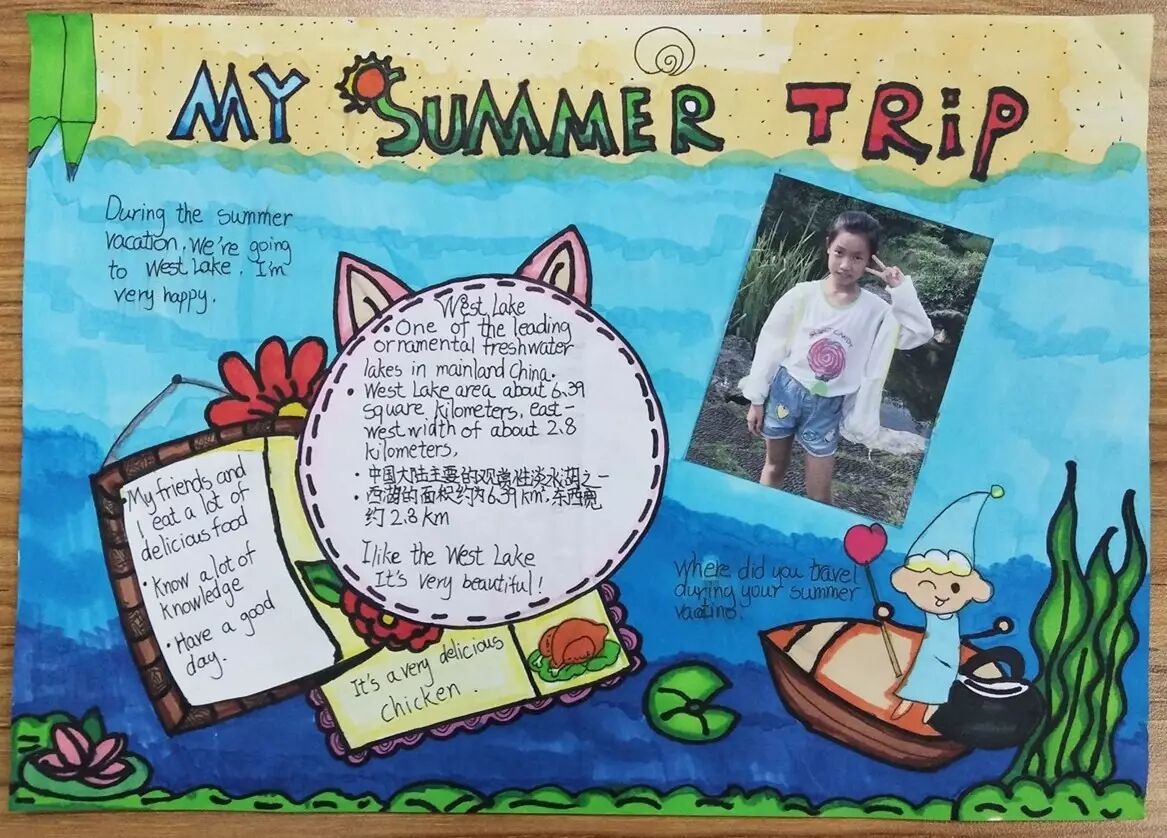 MY SUMMER TRIP
During the summer
vacation, We're going
to West Lake. I'm
very happy.
West Lake
• One of the leading
ornamental freshwater
lakes in mainland China.
• West Lake area about 6.39
square kilometers, east-
west width of about 2.8
kilometers,
• 中国大陆主要的观赏性淡水湖之一
• 西湖的面积约为6.39km². 东西宽
约2.8km
I like the West Lake
It's very beautiful!
My friends and
I eat a lot of
delicious food
• Know a lot of
knowledge
• Have a good
day.
It's a very delicious
chicken.
Where did you travel
during your summer